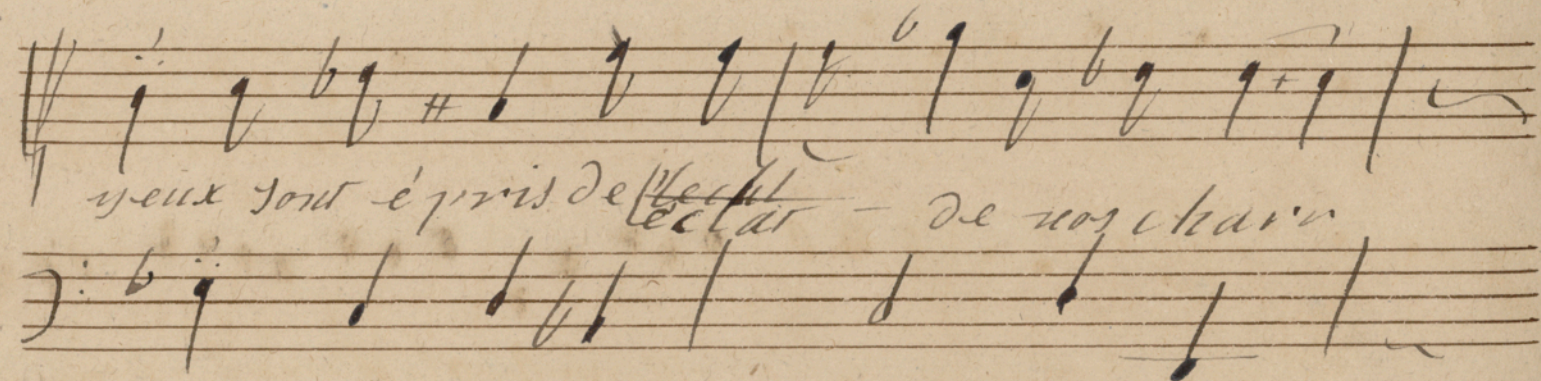 yeux sont épris de l'eclat
éclat - de nos charm